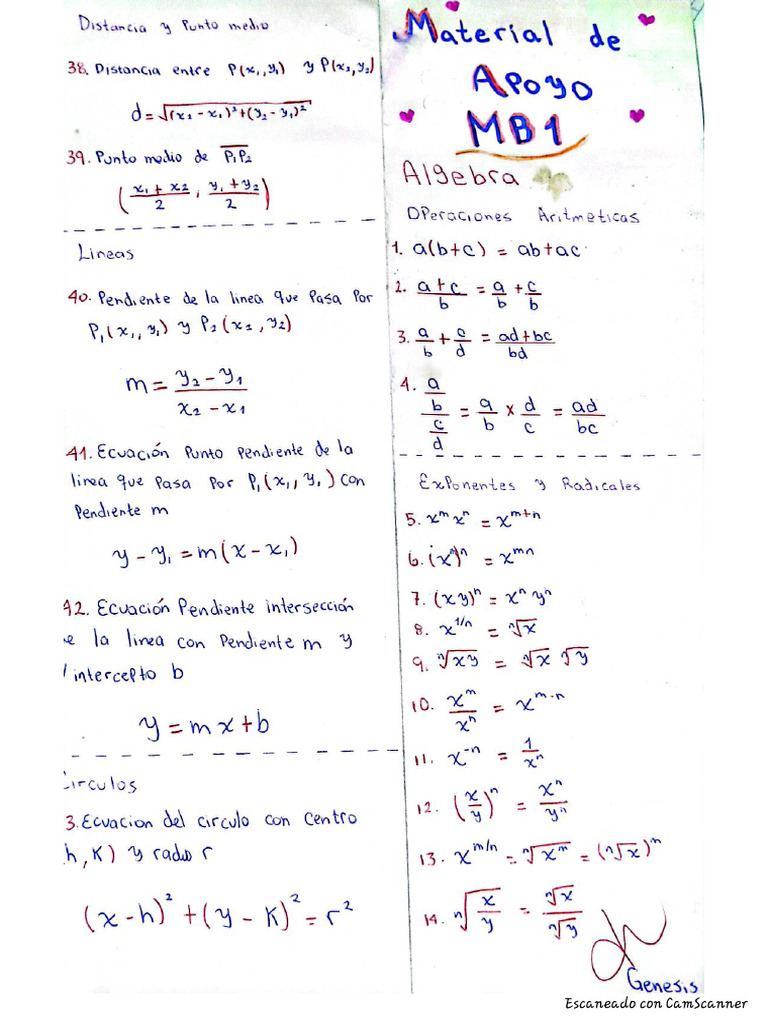 Distancia y Punto medio
38. Distancia entre P(x₁,y₁) y P(x₂,y₂)
d=√(x₂-x₁)²+(y₂-y₁)²
39. Punto medio de P₁P₂
(x₁+x₂/2, y₁+y₂/2)
Lineas
40. Pendiente de la linea que Pasa Por
P₁(x₁,y₁) y P₂(x₂,y₂)
m = y₂-y₁/x₂-x₁
41. Ecuación Punto Pendiente de la
linea que pasa por P₁(x₁,y₁) con
Pendiente m
y-y₁=m(x-x₁)
42. Ecuación Pendiente intersección
e la linea con Pendiente m y
intercepto b
y=mx+b
irculos
3. Ecuacion del circulo con centro
h,K) y radio r
(x-h)²+(y-K)²=r²
Material de
Apoyo
MB1
Algebra
Operaciones Aritmeticas
1. a(b+c) = ab+ac
2. a+c/b = a/b + c/b
3. a/b + c/d = ad+bc/bd
4. a/b/c/d = a/b x d/c = ad/bc
Exponentes y Radicales
5. xᵐxⁿ = xᵐ⁺ⁿ
6. (xᵐ)ⁿ = xᵐⁿ
7. (xy)ⁿ = xⁿyⁿ
8. x^1/n = ⁿ√x
9. ⁿ√xy = ⁿ√x ⁿ√y
10. xᵐ/xⁿ = xᵐ⁻ⁿ
11. x⁻ⁿ = 1/xⁿ
12. (x/y)ⁿ = xⁿ/yⁿ
13. x^m/n = ⁿ√xᵐ = (ⁿ√x)ᵐ
14. ⁿ√x/y = ⁿ√x/ⁿ√y
Genesis
Escaneado con CamScanner